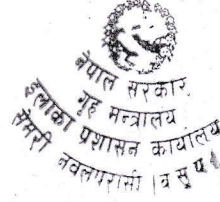 नेपाल सरकार
गृह मन्त्रालय
इलाका प्रशासन कार्यालय
सेमरी नवलपरासी (ब सु पू)